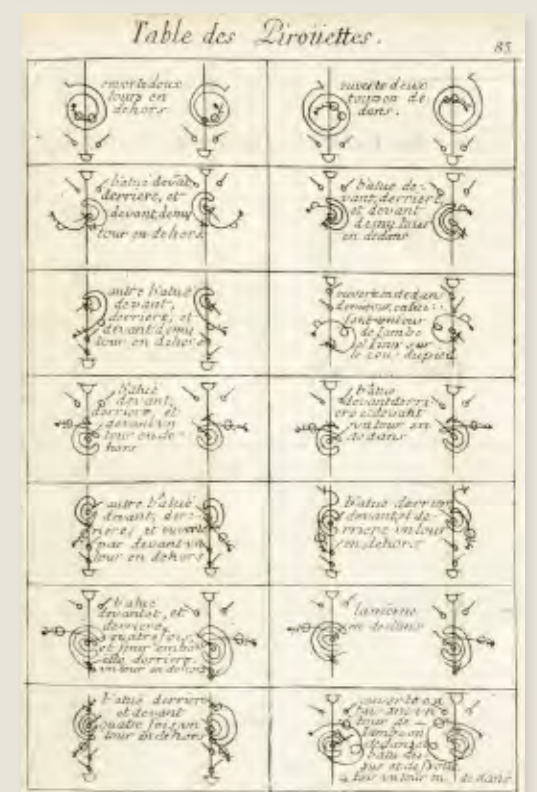 Table des Piroüettes.
85
ouverte deux
tours en
dehors
ouverte deux
tours en de
dans.
batuë devāt
derriere, et
devant demy
tour en dehors
batuë de-
vant, derriere
et devant
demy tour
en dedans
autre batuë
devant,
derriere, et
devant demy
tour en dehors
ouverte en dedans
un tour
de jambe
et finir sur
le cou-du pied
batuë
devant,
derriere, et
devant un
tour en de-
hors
batuë
devant derri
ere et devant
un tour en
dedans
autre batuë
devant, der-
riere, et ouverte
par devant un
tour en dehors
batuë derriere
devant, et de-
rriere un tour
en dehors
batuë
devant, et
derriere,
quatre fois,
et finir emboi
ttée derriere
un tour en dehors
la meme
en dedans
batuë derriere
et devant
quatre fois, un
tour en dehors
ouverte en
tour de
jambe en
dedans, et
batu
fois un tour en dedans